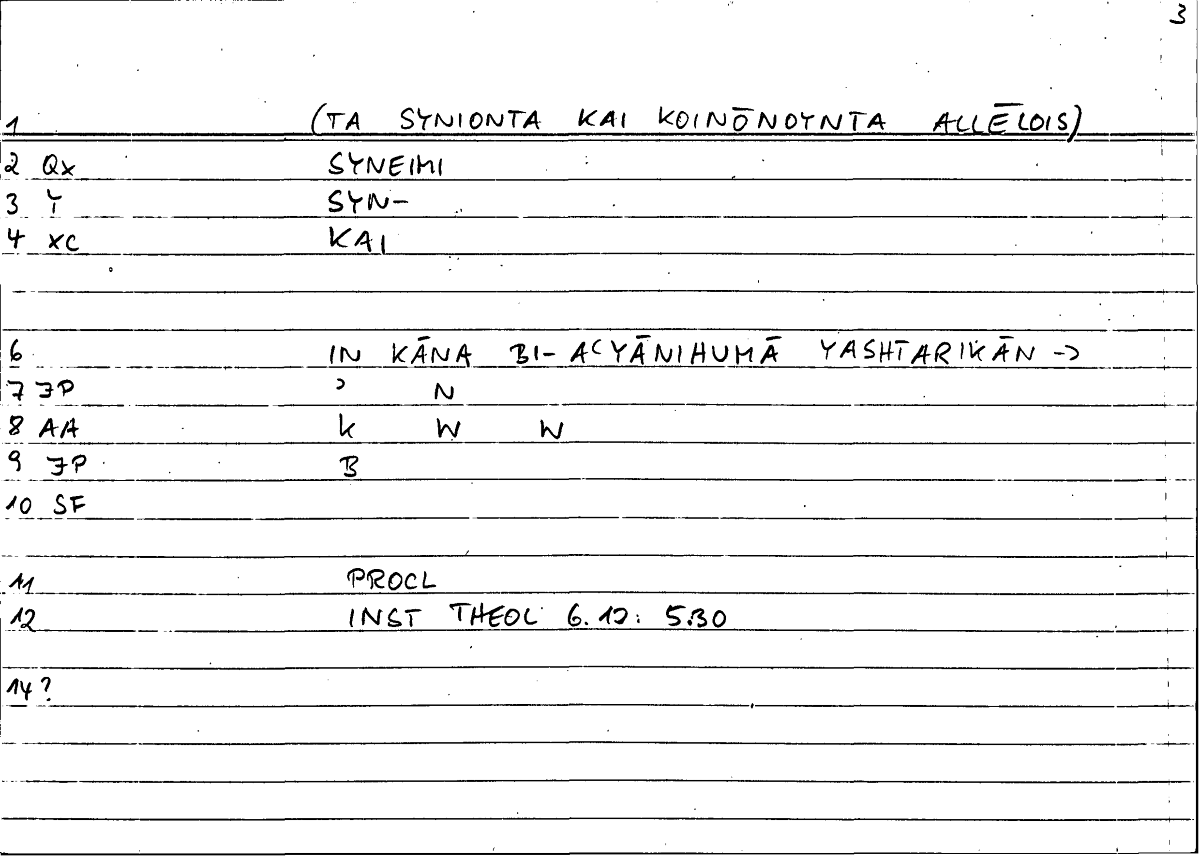 3
1 (TA SYNIONTA KAI KOINŌNOYNTA ALLĒLOIS)
2 Qx SYNEIMI
3 Y SYN-
4 xC KAI
6 IN KĀNA BI-AʿYĀNIHUMĀ YASHTARIKĀN ->
7 JP ʾ N
8 AA K W W
9 JP B
10 SF
11 PROCL
12 INST THEOL 6.12: 5.30
14?